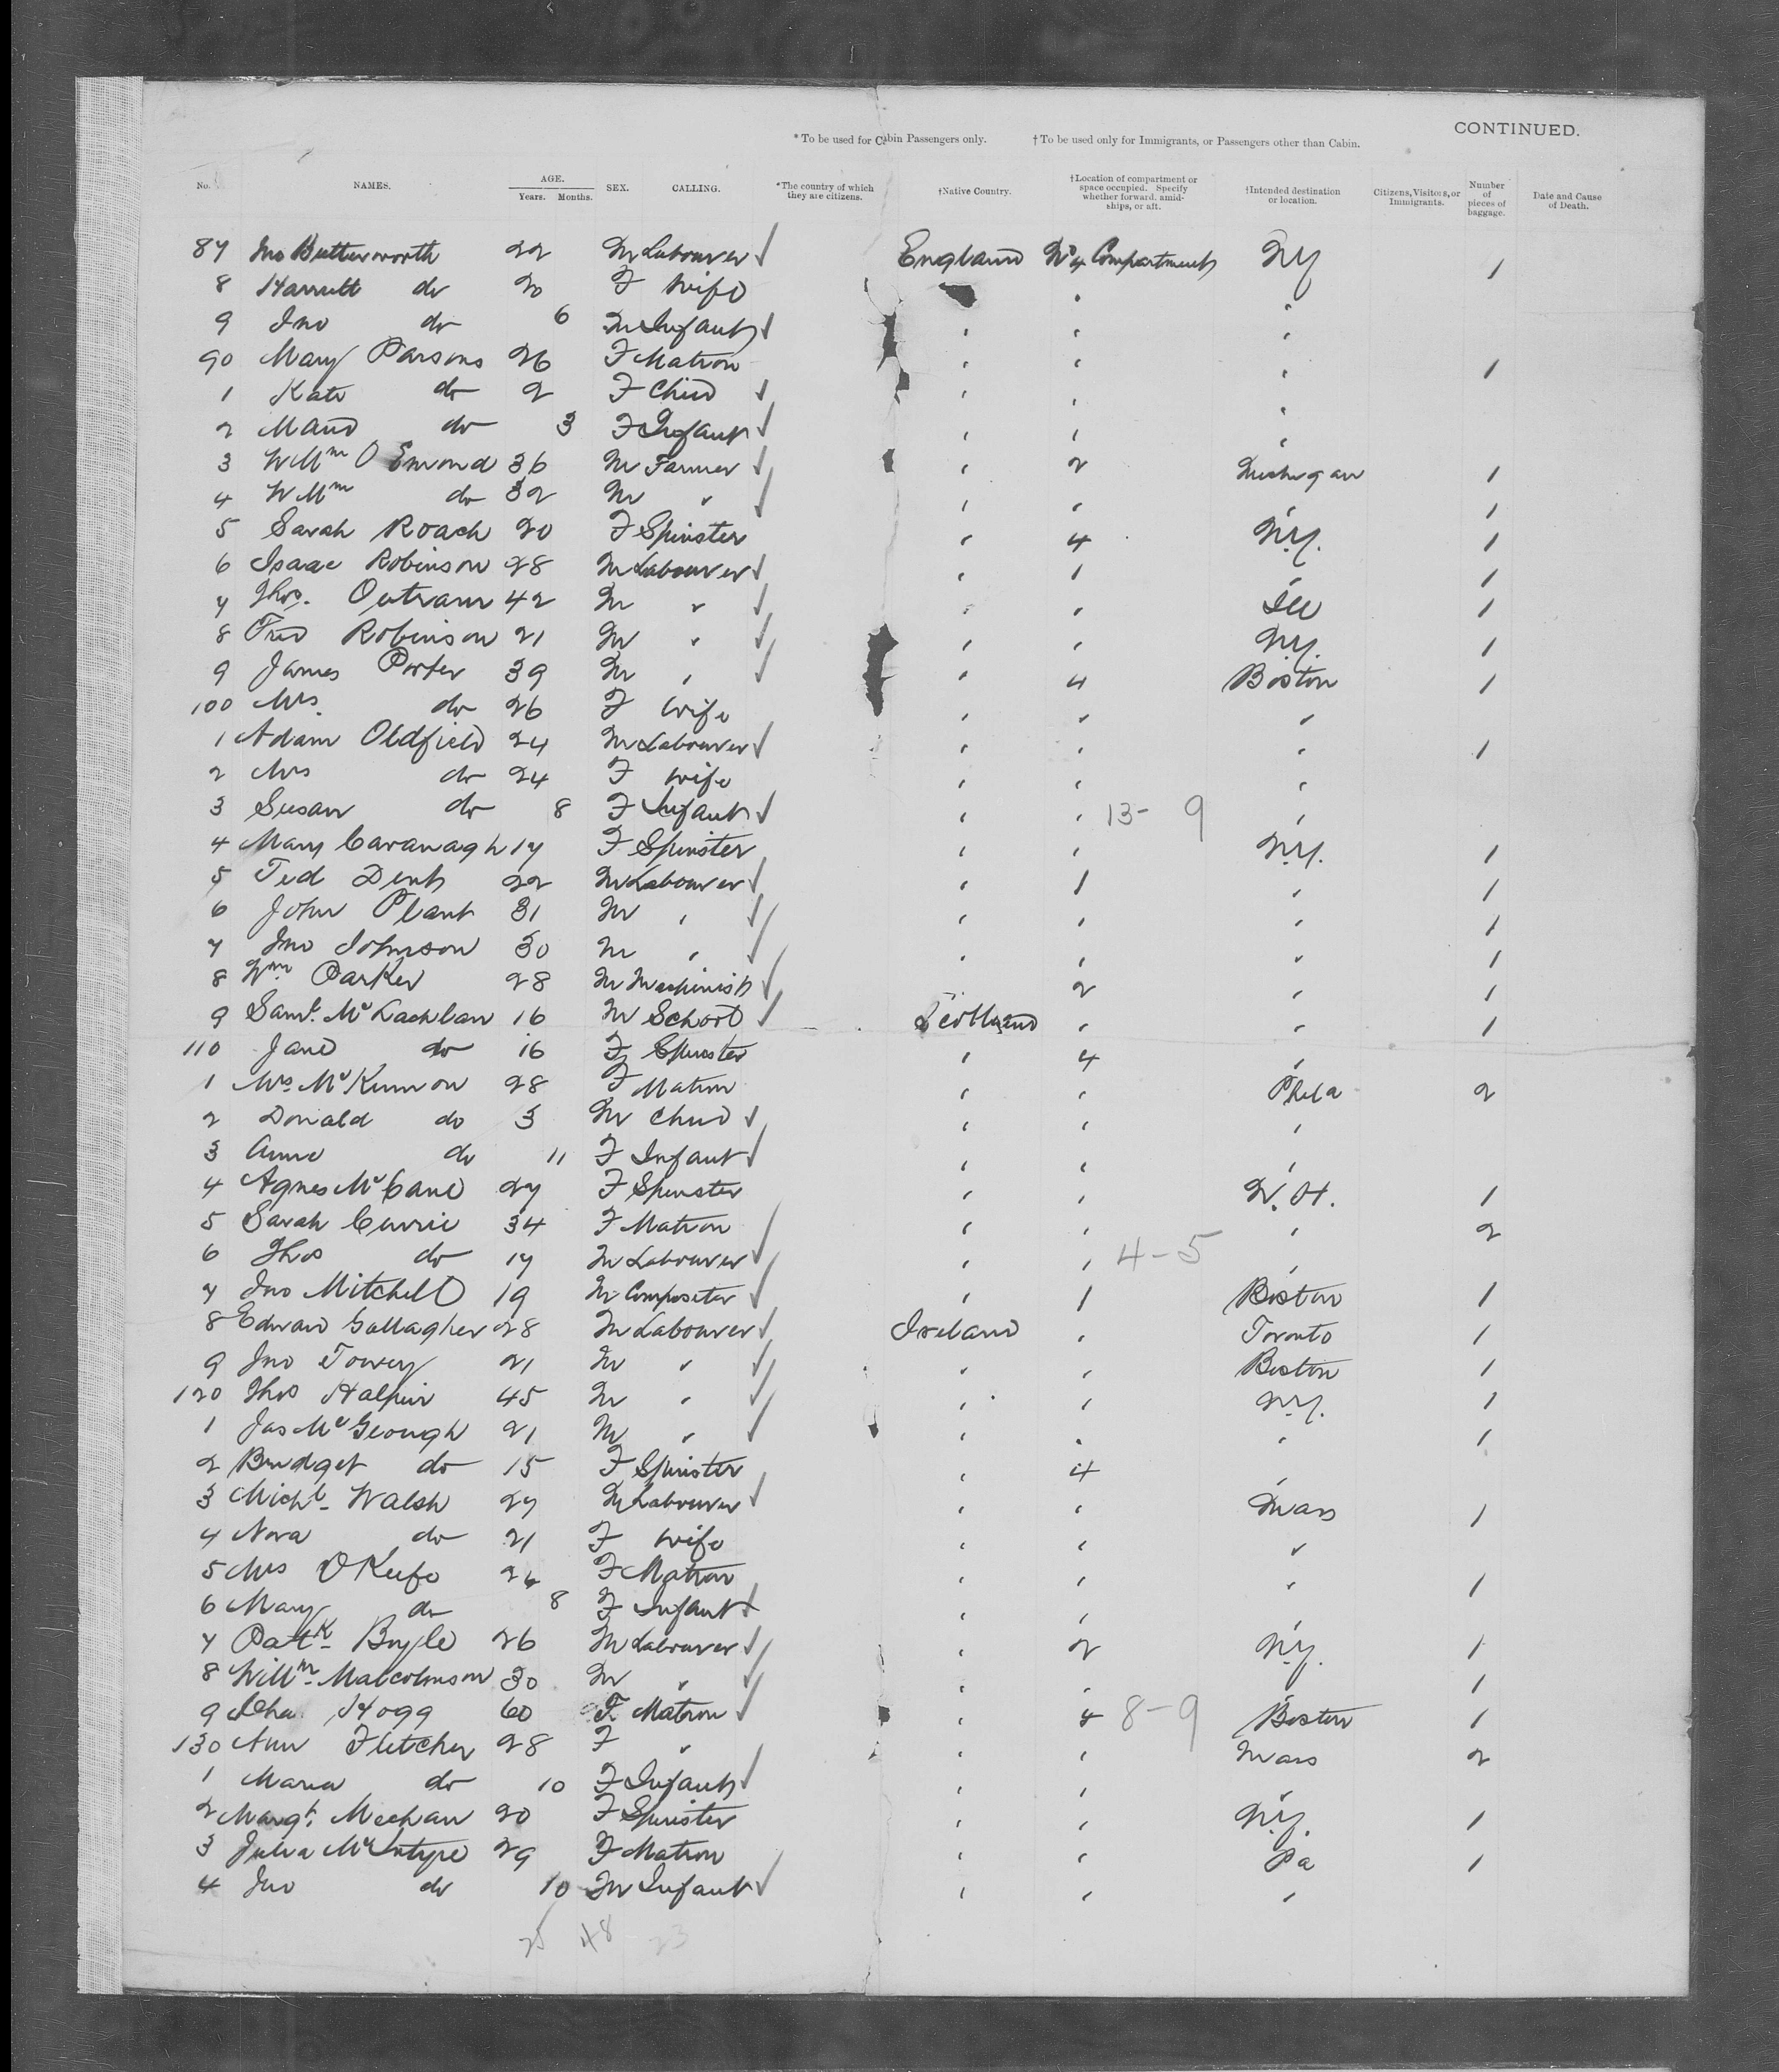 CONTINUED.
* To be used for Cabin Passengers only. † To be used only for Immigrants, or Passengers other than Cabin.
No. NAMES. AGE. Years. Months. SEX. CALLING. *The country of which they are citizens. †Native Country. †Location of compartment or space occupied. Specify whether forward, amid-ships, or aft. †Intended destination or location. Citizens, Visitors, or Immigrants. Number of pieces of baggage. Date and Cause of Death.
87 Jno Butterworth 22 M Labourer England No 4 Compartment NY 1
8 Harriett do 20 F Wife " "
9 Jno do 6 M Infant " " "
90 Mary Parsons 26 F Matron " " " 1
1 Kate do 2 F Child " " "
2 Maud do 3 F Infant " " "
3 Willm O Emond 36 M Farmer " 2 Michigan 1
4 Willm do 32 M " " " " 1
5 Sarah Roach 20 F Spinster " 4 N.Y. 1
6 Isaac Robinson 28 M Labourer " 1 " 1
7 Thos. Outram 42 M " " " Ill 1
8 Fred Robinson 21 M " " " N.Y. 1
9 James Porter 39 M " " 4 Boston 1
100 Mrs. do 26 F Wife " " "
1 Adam Oldfield 24 M Labourer " " " 1
2 Mrs do 24 F Wife " " "
3 Susan do 8 F Infant " " 13-9 "
4 Mary Cavanagh 17 F Spinster " " N.Y. 1
5 Ted Dent 22 M Labourer " 1 " 1
6 John Plant 31 M " " " " 1
7 Jno Johnson 30 M " " " " 1
8 Wm Parker 28 M Machinist 2 " 1
9 Saml. McLachlan 16 M School Scotland " " 1
110 Jane do 16 F Spinster " 4 "
1 Mrs McKinnon 28 F Matron " " Phila 2
2 Donald do 3 M Child " " "
3 Anne do 11 F Infant " " "
4 Agnes McCane 27 F Spinster " " N.H. 1
5 Sarah Currie 34 F Matron " " " 2
6 Thos do 17 M Labourer " " 4-5 "
7 Jno Mitchell 19 M Compositor " 1 Boston 1
8 Edward Gallagher 28 M Labourer Ireland " Toronto 1
9 Jno Towey 21 M " " " Boston 1
120 Thos Halpin 45 M " " " N.Y. 1
1 Jas McGeough 21 M " " " " 1
2 Bridget do 15 F Spinster " 4 "
3 Michl Walsh 27 M Labourer " " Mass 1
4 Nora do 21 F Wife " " "
5 Mrs O'Keefe 26 F Matron " " " 1
6 Mary do 8 F Infant " "
7 Patk Boyle 26 M Labourer " 2 N.Y. 1
8 Willm Malcolmson 30 M " " " " 1
9 Hogg 60 F Matron " 4 8-9 Boston 1
130 Ann Fletcher 28 F " " " Mass 2
1 Maria do 10 F Infant " " "
2 Margt. Meehan 20 F Spinster " " N.Y. 1
3 Julia McIntyre 29 F Matron " " Pa 1
4 Jno do 10 M Infant " " "
25 48 23